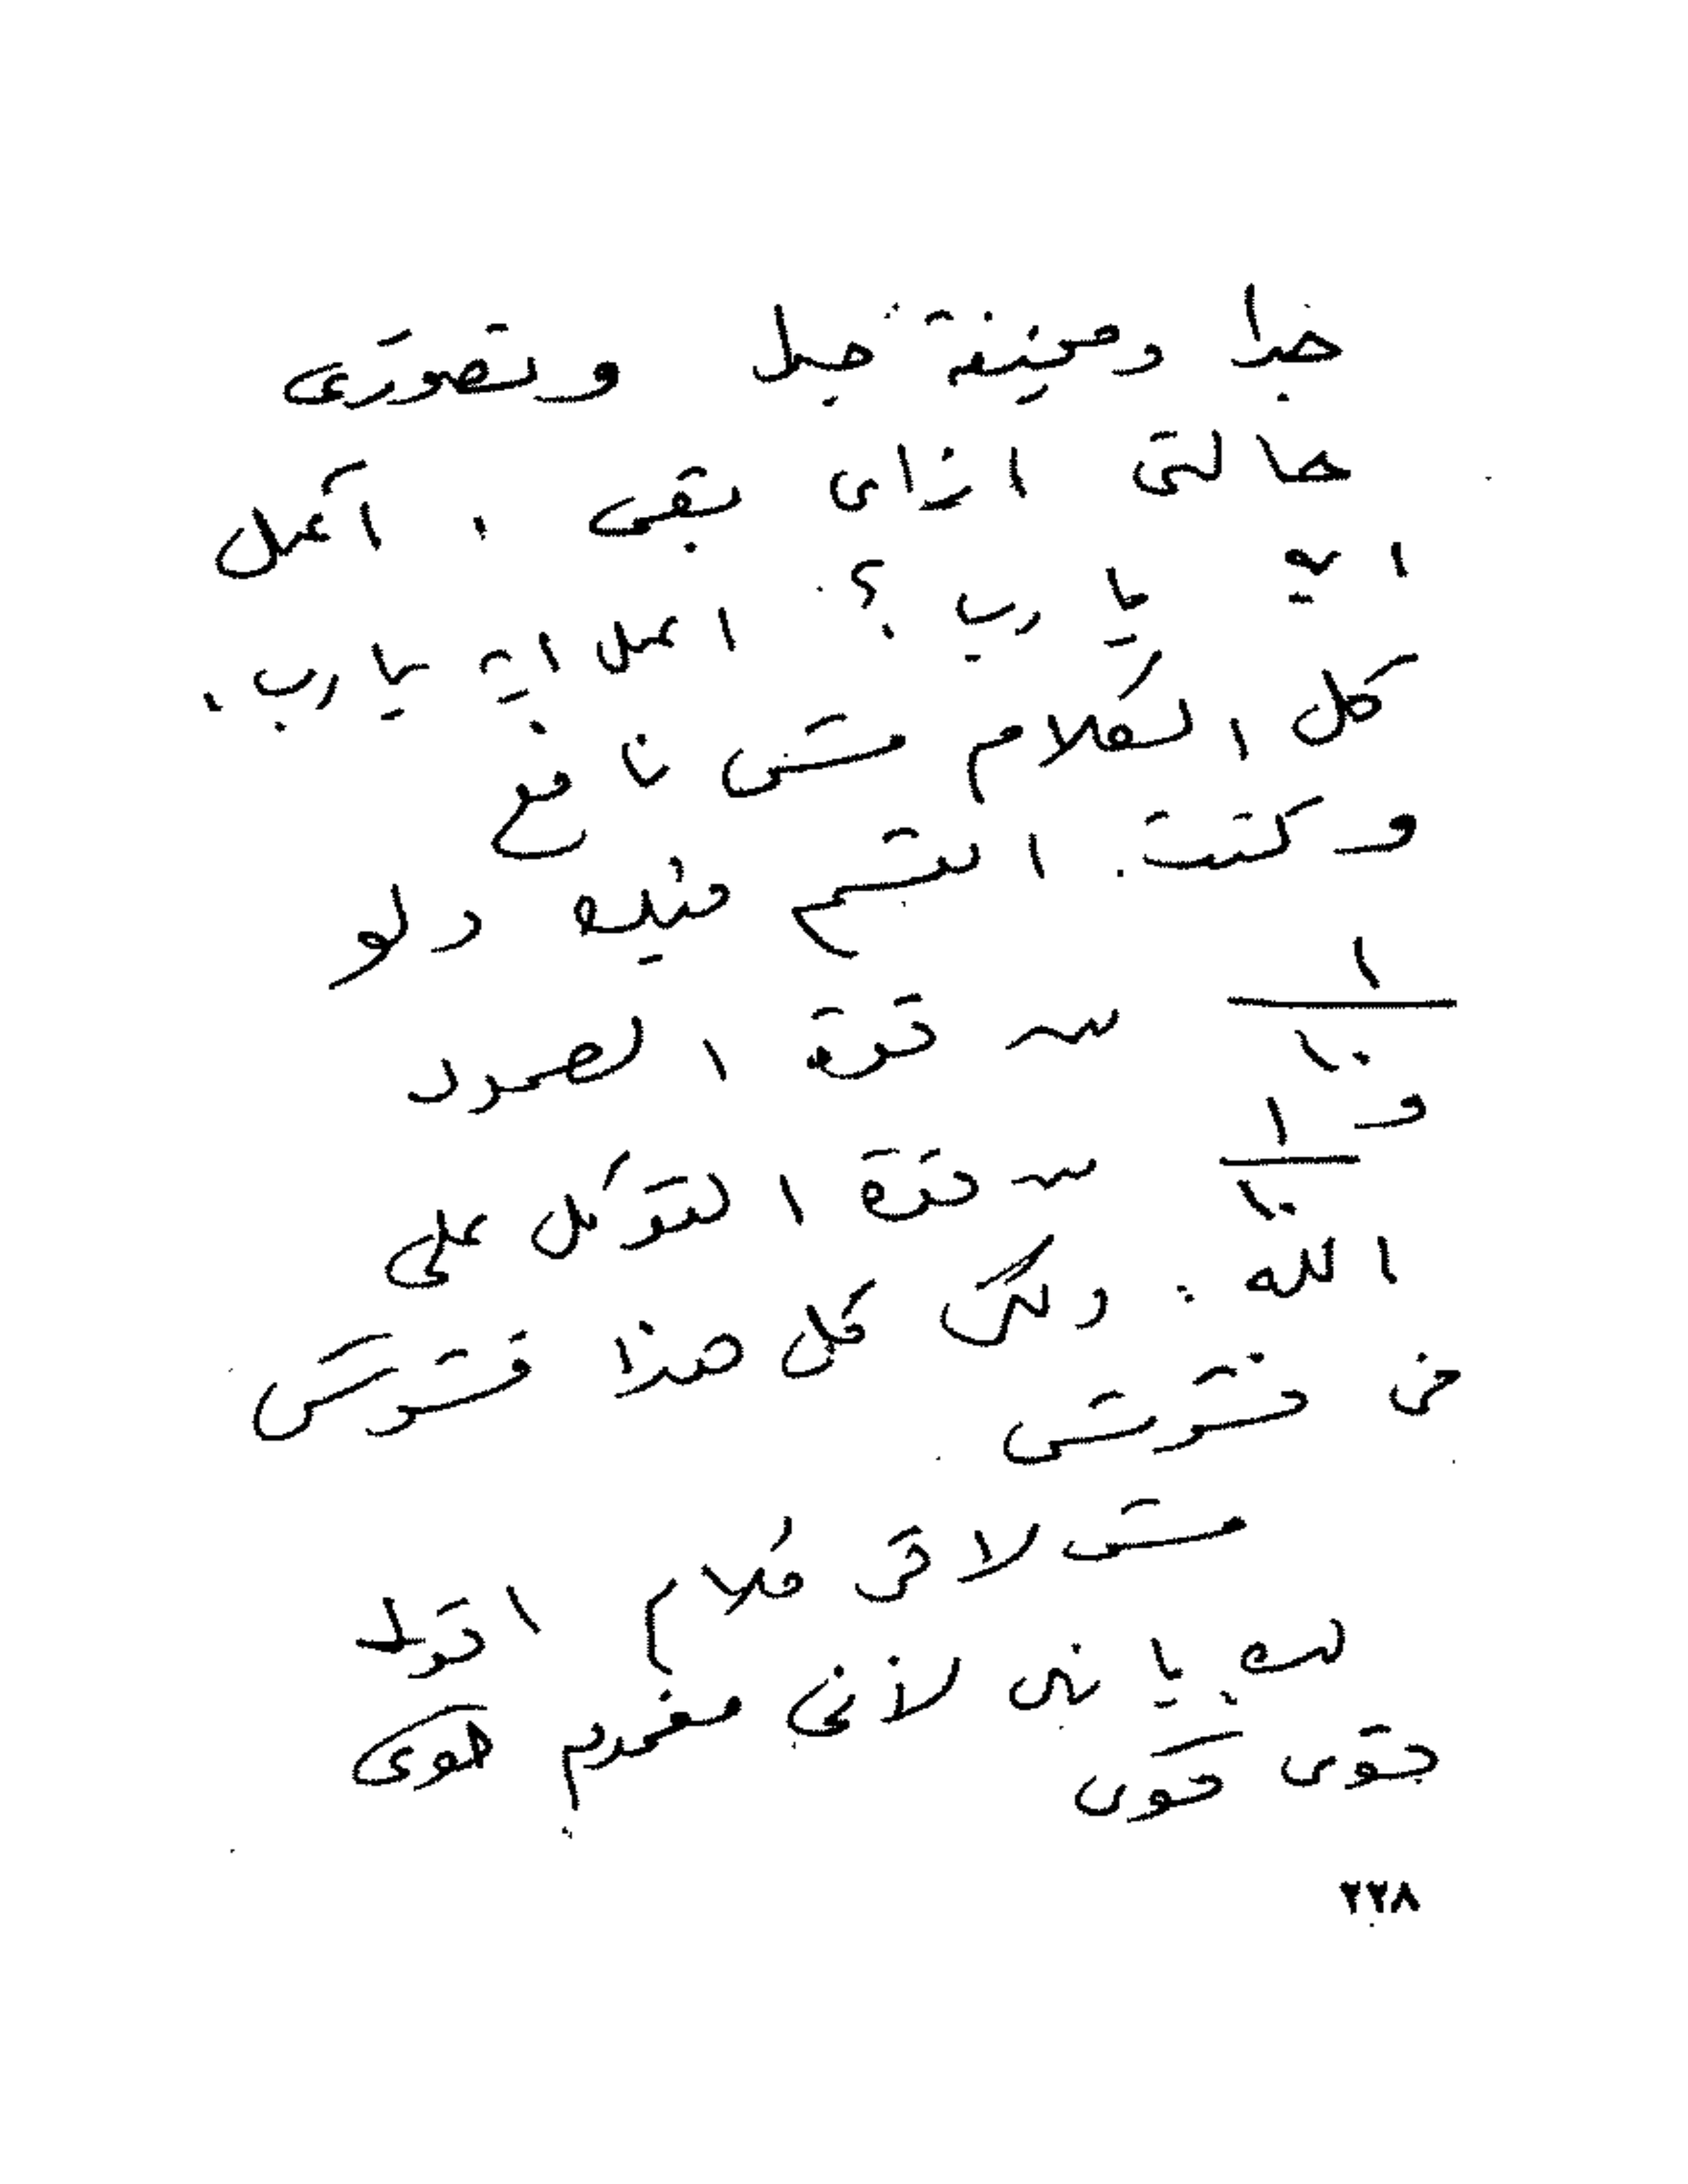 جدا وحزينة جدا وتصورى
حالتى ازاى بقى . أعمل
ايه يارب ؟ اعمل ايه يارب .
كل الكلام مش نافع
وكنت ابتسم فيه ولو
١/١٠ من قوة الصمود
و ١/١٠ من قوة التوكل على
الله . ولكن كل هذا فشوش
فى فشوش
مش لاقى كلام اقوله
لك يا نهى لأنى مغموم قوى
قوى قوى
٢٢٨